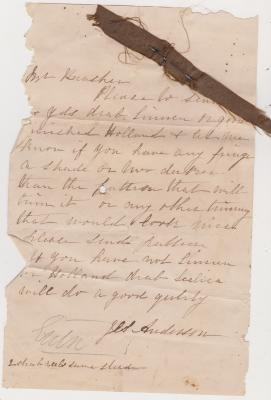 Mr Brasher
Please to send
yds drab Linnen or good
finished Holland & let me
know if you have any fringe
a shade or two darker
than the pattern that will
trim it or any other triming
that would look nice
please send pattern
If you have not Linnen
or Holland drab Silicia
will do a good quality
Jas Anderson
2 drab reels same shade